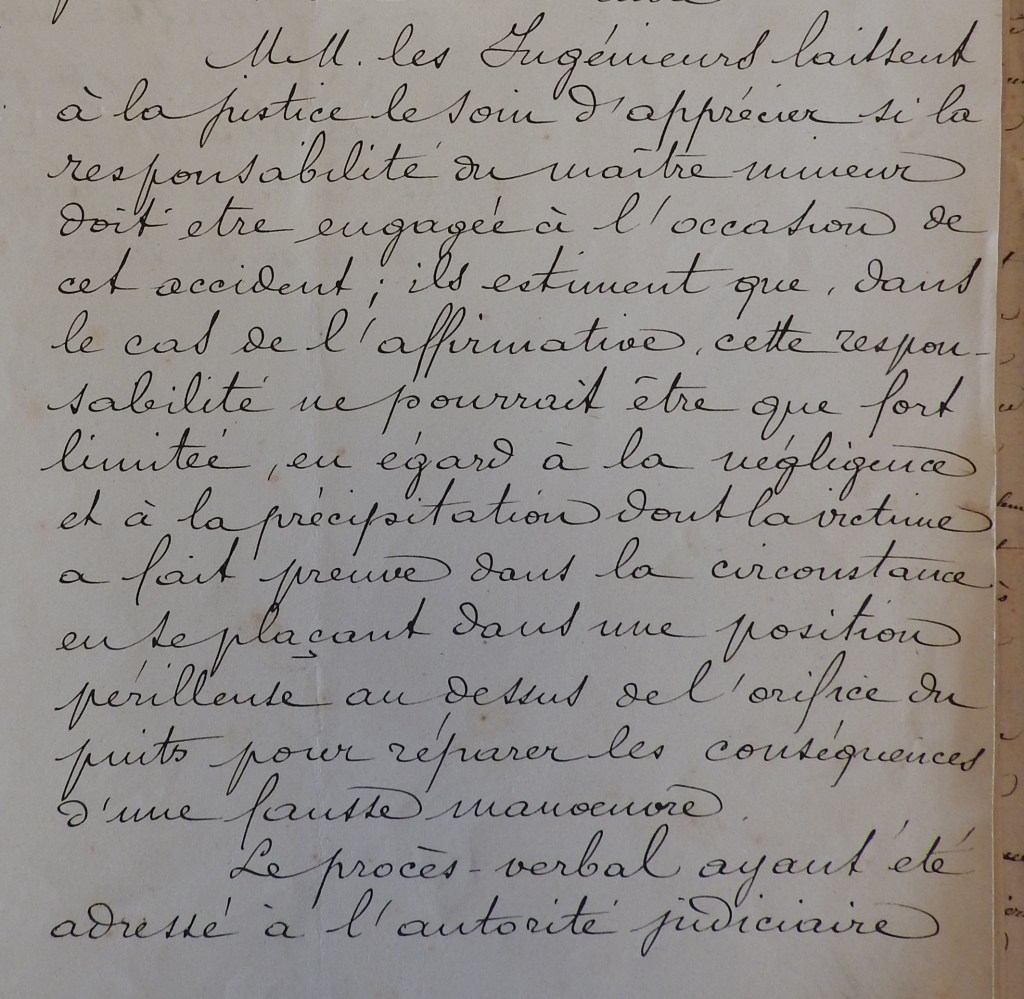 MM. les Ingénieurs laissent
à la justice le soin d'apprécier si la
responsabilité du maître mineur
doit etre engagée à l'occasion de
cet accident ; ils estiment que, dans
le cas de l'affirmative, cette respon-
sabilité ne pourrait être que fort
limitée, eu égard à la négligence
et à la précipitation dont la victime
a fait preuve dans la circonstance
en se plaçant dans une position
périlleuse au dessus de l'orifice du
puits pour réparer les conséquences
d'une fausse manœuvre.
Le procès-verbal ayant été
adressé à l'autorité judiciaire